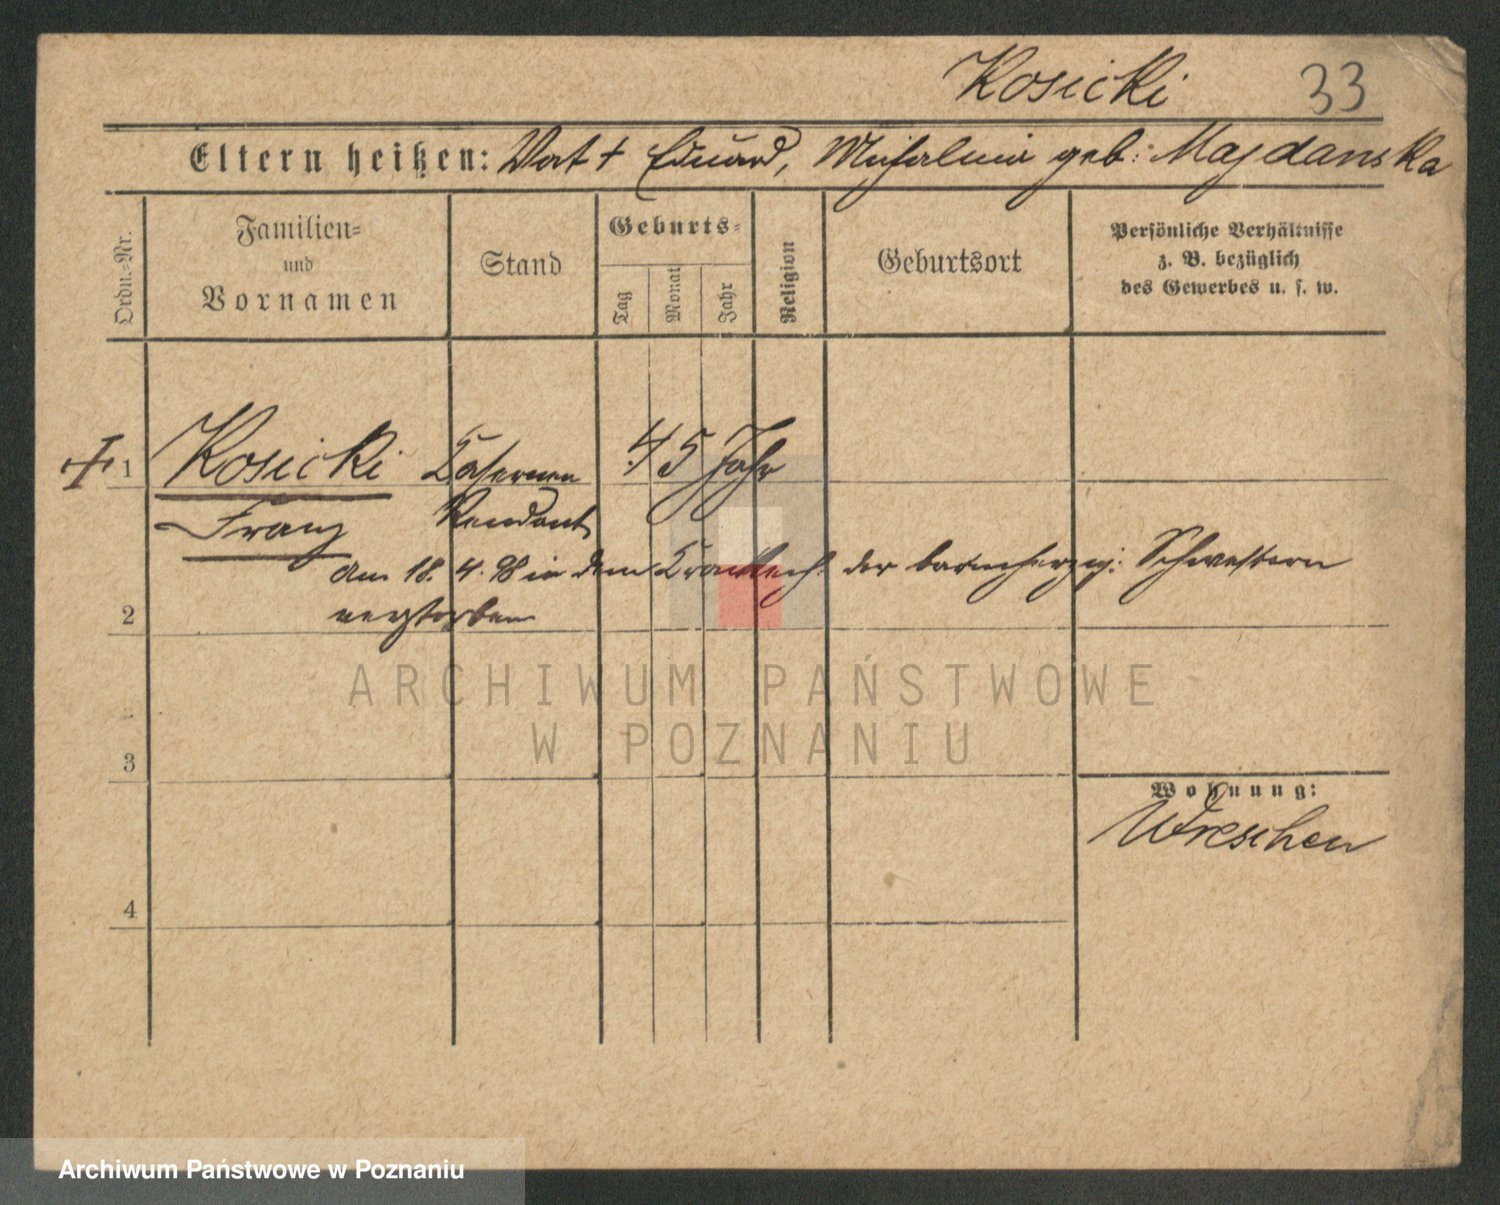 Kosicki 33
Eltern heißen: Vat † Eduard, Michalina geb: Majdanska
Ordn.-Nr.
Familien-
und
Vornamen
Stand
Geburts-
Tag
Monat
Jahr
Religion
Geburtsort
Persönliche Verhältnisse
z. B. bezüglich
des Gewerbes u. s. w.
1 Kosicki Kasernen 45 Jahr
Franz Rendant
Am 18. 4. 98 in dem der barmherzig: Schwestern
2 verstorben
ARCHIWUM PAŃSTWOWE
W POZNANIU
3
Wohnung:
Wreschen
4
Archiwum Państwowe w Poznaniu